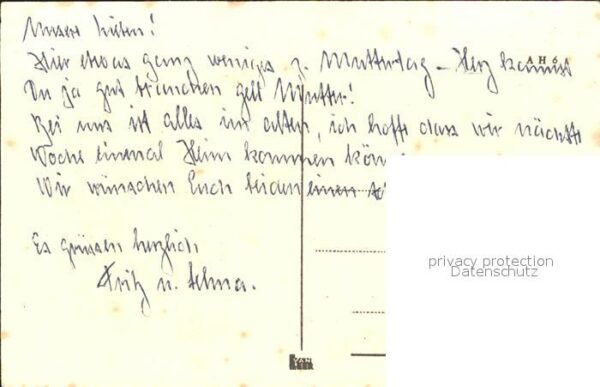 Unsere lieben!
Hier etwas ganz weniges z. Muttertag – Herz kannst
AH6A
Du ja gut brauchen gell Mutter!
Bei uns ist alles im alten, ich hoffe dass wir nächste
Woche einmal Heim kommen kön
Wir wünschen Euch beiden einen
Es grüssen herzlich
Fritz u. Selma.
privacy protection
Datenschutz